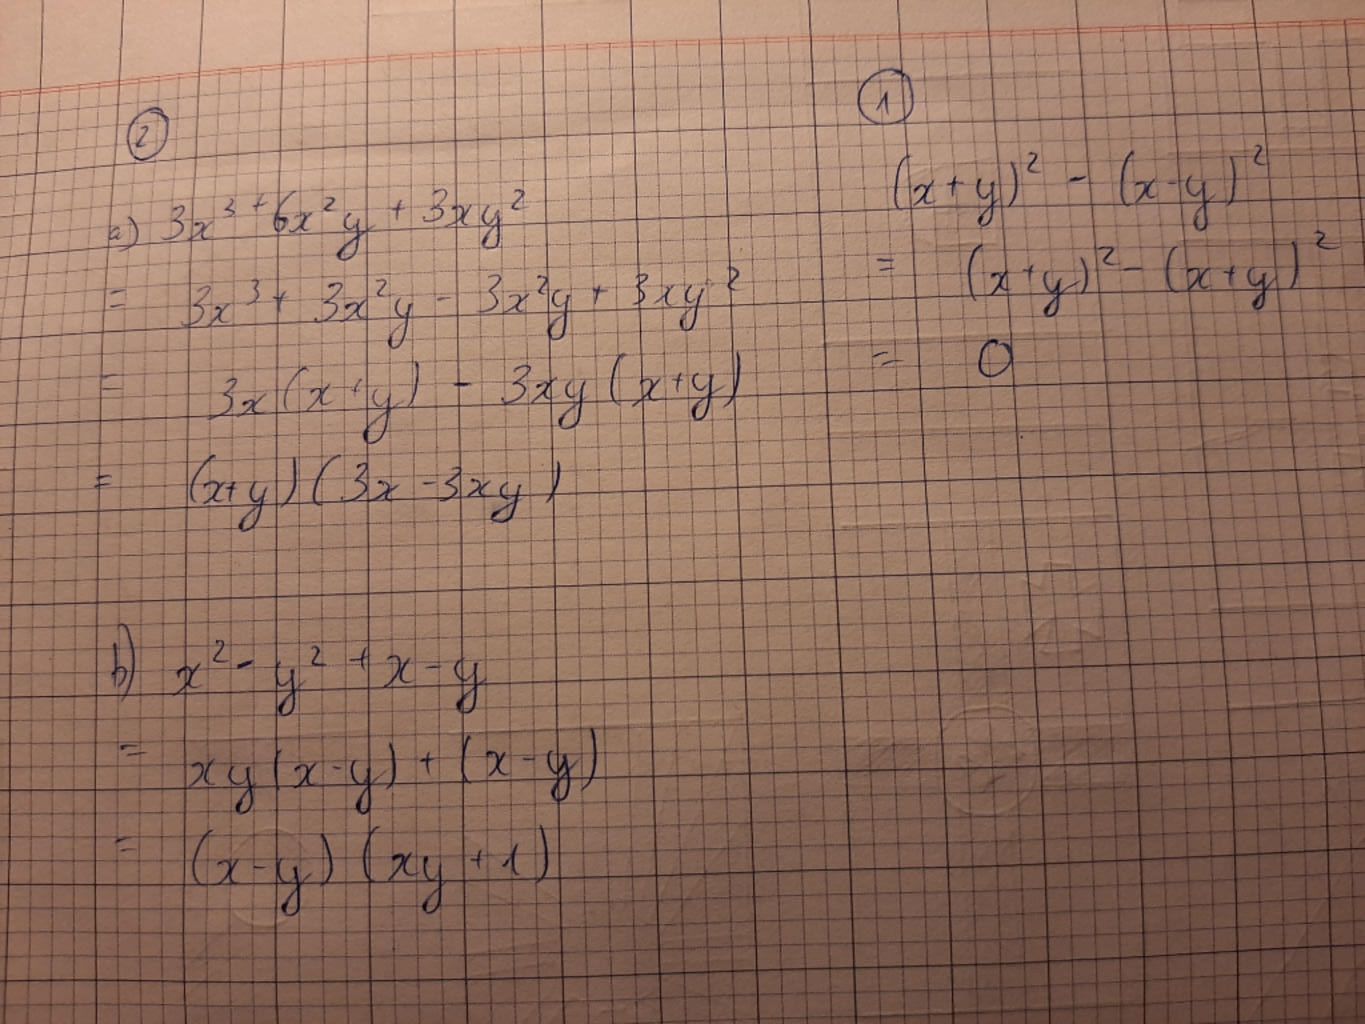 ②
a) 3x³ + 6x²y + 3xy²
= 3x³ + 3x²y - 3x²y + 3xy²
= 3x(x+y) - 3xy(x+y)
= (x+y)(3x-3xy)
b) x² - y² + x - y
= xy(x-y) + (x-y)
= (x-y)(xy+1)
①
(x+y)² - (x-y)²
= (x+y)² - (x+y)²
= 0